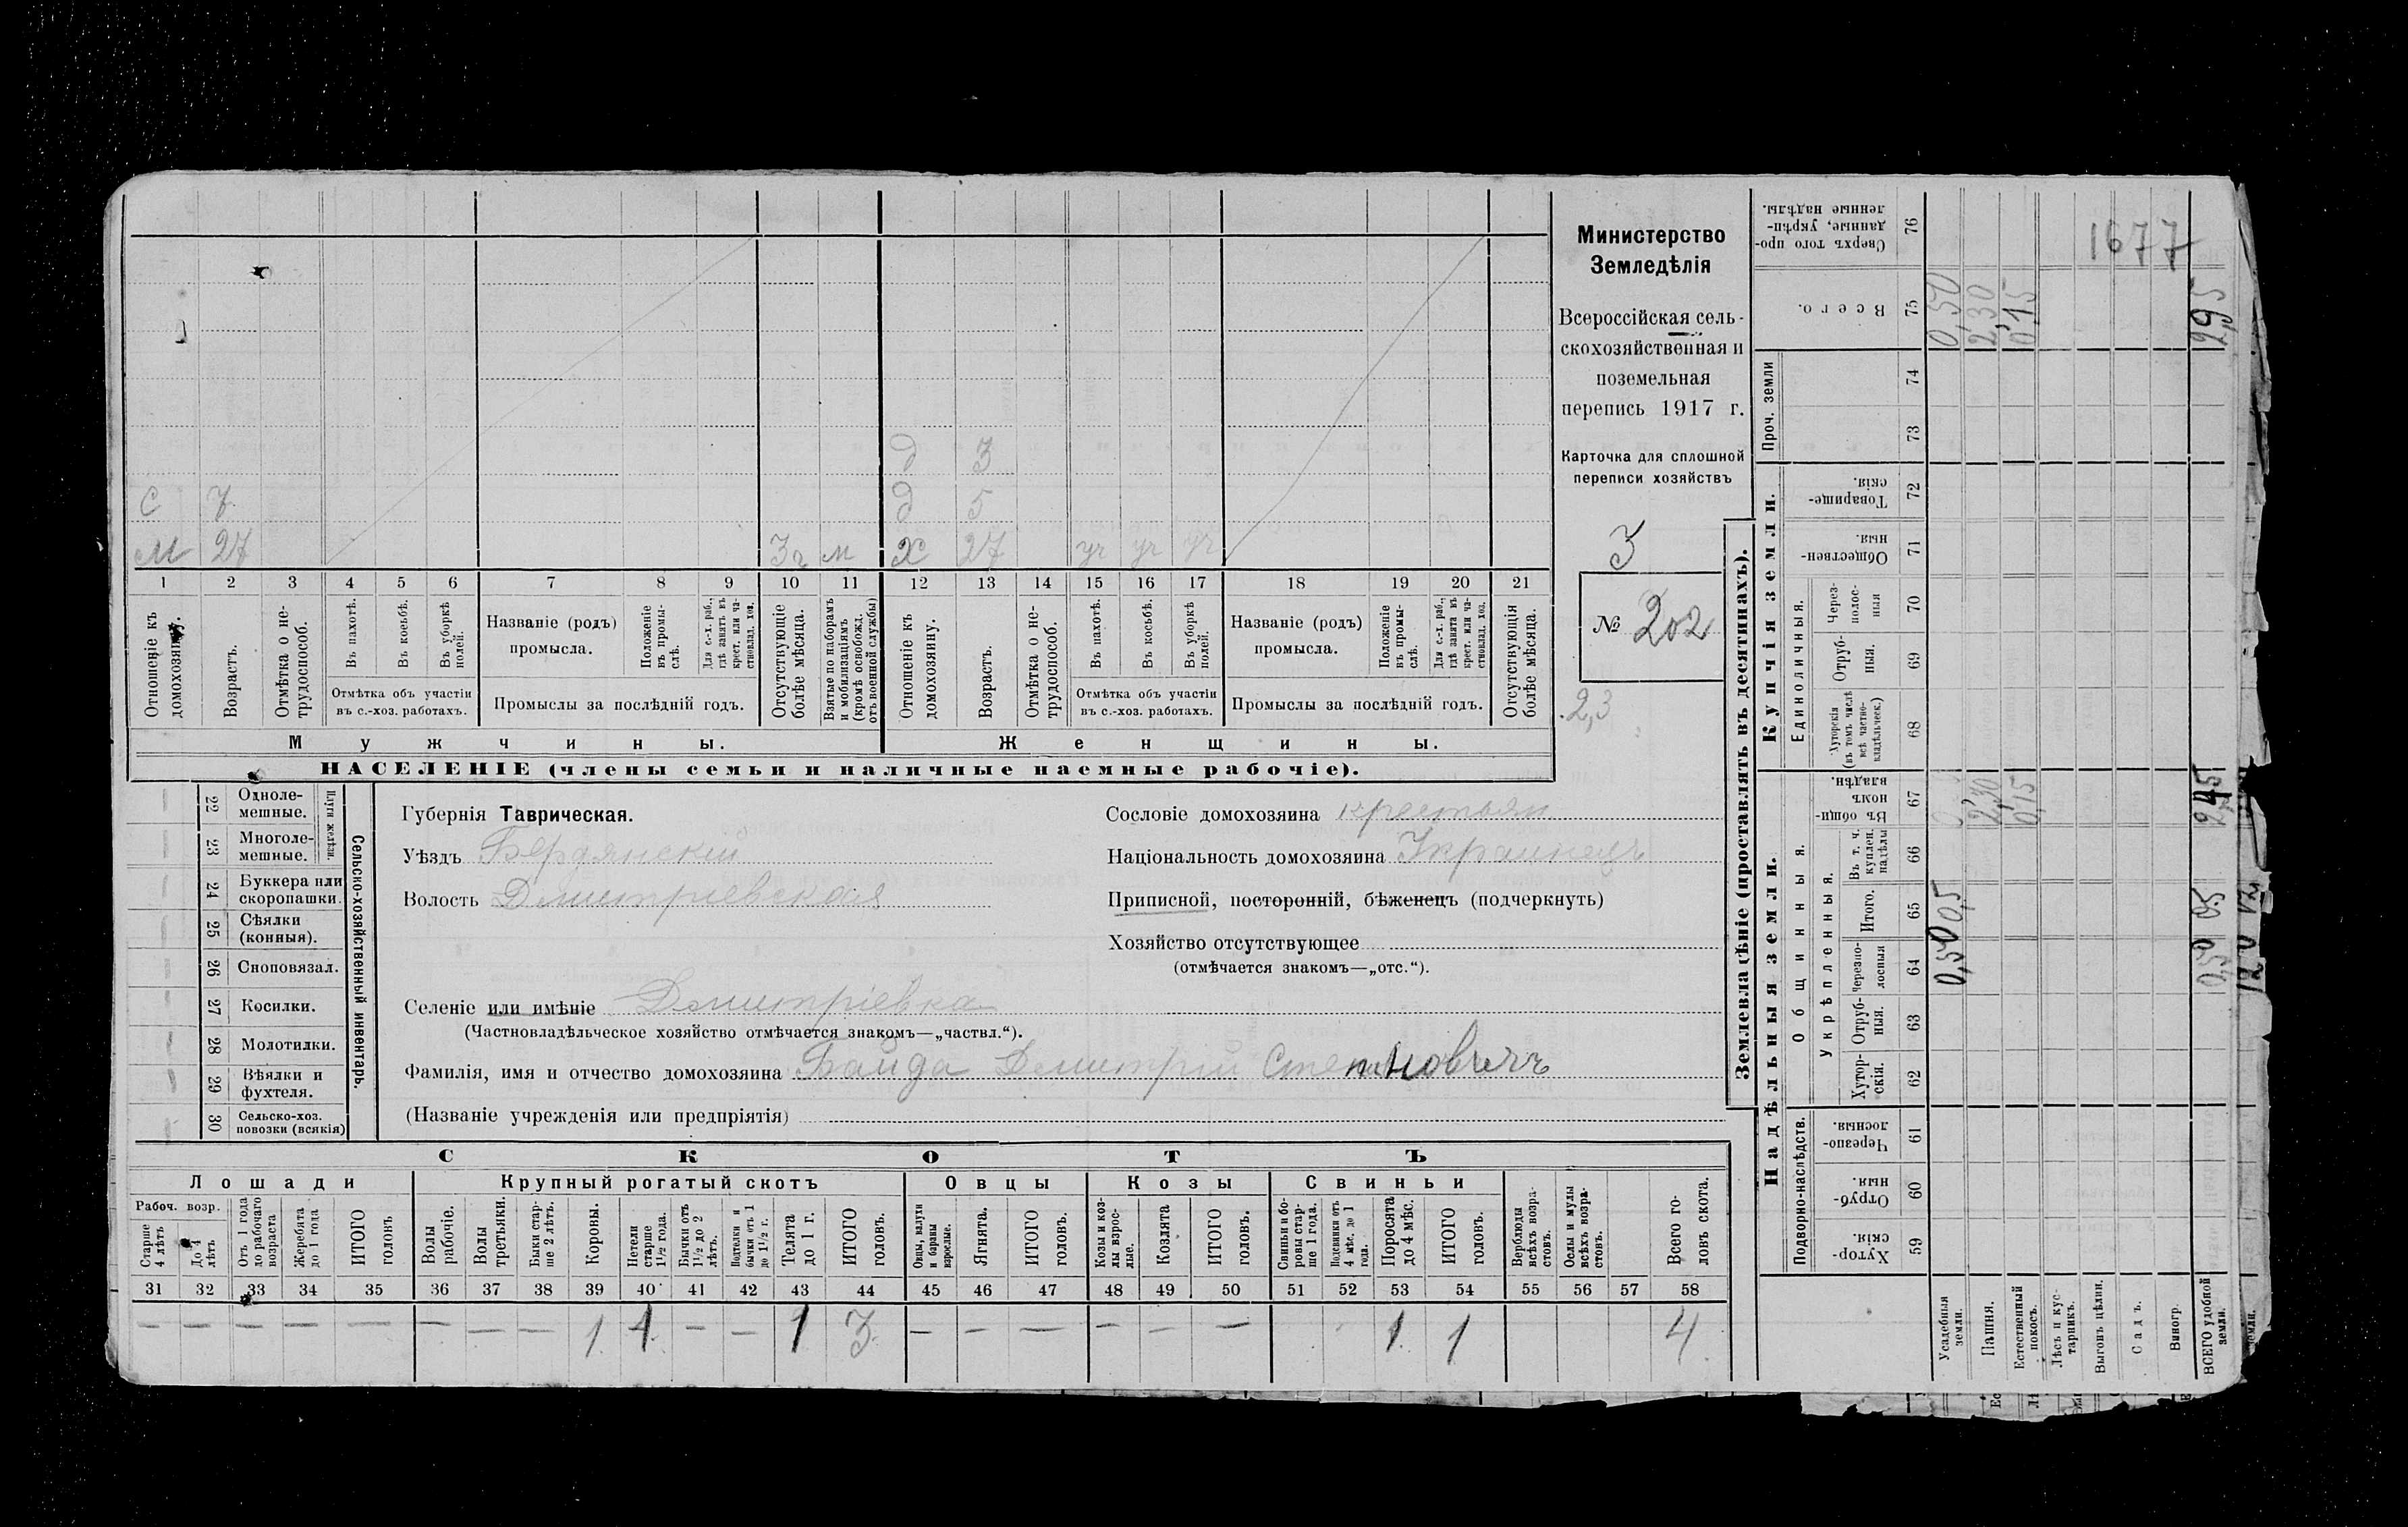 Министерство
Земледѣлія
Всероссійская сель-
скохозяйственная и
поземельная
перепись 1917 г.
Карточка для сплошной
переписи хозяйствъ
3
№ 202
2,3
д 3
с 7 д 5
м 27 3г м х 27 уч уч уч
1 2 3 4 5 6 7 8 9 10 11 12 13 14 15 16 17 18 19 20 21
Отношеніе къ домохозяину.
Возрастъ.
Отмѣтка о не-
трудоспособ.
Въ пахотѣ.
Въ косьбѣ.
Въ уборкѣ полей.
Отмѣтка объ участіи
въ с.-хоз. работахъ.
Названіе (родъ)
промысла.
Положеніе въ промы-
слѣ.
Для с.-х. раб.,
гдѣ занятъ въ
крест. или ча-
стновлад. хоз.
Промыслы за послѣдній годъ.
Отсутствующіе
болѣе мѣсяца.
Взятые по наборамъ
и мобилизаціямъ
(кромѣ освобожд.
отъ военной службы)
Отношеніе къ
домохозяину.
Возрастъ.
Отмѣтка о не-
трудоспособ.
Въ пахотѣ.
Въ косьбѣ.
Въ уборкѣ
полей.
Отмѣтка объ участіи
въ с.-хоз. работахъ.
Названіе (родъ)
промысла.
Положеніе
въ промы-
слѣ.
Для с.-х. раб.,
гдѣ занята въ
крест. или ча-
стновлад. хоз.
Промыслы за послѣдній годъ.
Отсутствующія
болѣе мѣсяца.
Мужчины.
Женщины.
НАСЕЛЕНІЕ (члены семьи и наличные наемные рабочіе).
22 Одноле-
мешные.
23 Многоле-
мешные.
Плуги желѣзн.
24 Буккера или
скоропашки.
25 Сѣялки
(конныя).
26 Сноповязал.
27 Косилки.
28 Молотилки.
29 Вѣялки и
фухтеля.
30 Сельско-хоз.
повозки (всякія)
Сельско-хозяйственный инвентарь.
Губернія Таврическая.
Уѣздъ Бердянскій
Волость Дмитріевская
Селеніе или имѣніе Дмитріевка
(Частновладѣльческое хозяйство отмѣчается знакомъ—„частвл.“).
Фамилія, имя и отчество домохозяина Байда Дмитрій Степановичъ
(Названіе учрежденія или предпріятія)
Сословіе домохозяина крестьян
Національность домохозяина Украинецъ
Приписной, посторонній, бѣженецъ (подчеркнуть)
Хозяйство отсутствующее
(отмѣчается знакомъ—„отс.“).
СКОТЪ
Лошади
Крупный рогатый скотъ
Овцы
Козы
Свиньи
Рабоч. возр.
Старше
4 лѣтъ
До 4
лѣтъ
Отъ 1 года
до рабочаго
возраста
Жеребята
до 1 года
ИТОГО
головъ
Волы
рабочіе.
Волы
третьяки.
Быки стар-
ше 2 лѣтъ.
Коровы.
Нетели
старше
1½ года.
Бычки отъ
1½ до 2
лѣтъ.
Подтелки и
бычки отъ 1
до 1½ г.
Телята
до 1 г.
ИТОГО
головъ.
Овцы, валухи
и бараны
взрослые.
Ягнята.
ИТОГО
головъ.
Козы и коз-
лы взрос-
лые.
Козлята
ИТОГО
головъ.
Свиньи и бо-
ровы стар-
ше 1 года.
Подсвинки отъ
4 мѣс. до 1
года.
Поросята
до 4 мѣс.
ИТОГО
головъ.
Верблюды
всѣхъ возра-
стовъ.
Ослы и мулы
всѣхъ возра-
стовъ.
Всего го-
ловъ скота.
31 32 33 34 35 36 37 38 39 40 41 42 43 44 45 46 47 48 49 50 51 52 53 54 55 56 57 58
— — — — — — — — 1 1 — — 1 3 — — — — — — 1 1 4
Землевладѣніе (проставлять въ десятинахъ).
Надѣльныя земли.
Купчія земли.
Проч. земли
Сверхъ того про-
данные, укрѣп-
ленные надѣлы.
76
Всего.
75
74
73
Товарище-
скія.
72
Обществен-
ныя.
71
Единоличныя.
Через-
полос-
ныя
70
Отруб-
ныя.
69
Хуторскія
(въ томъ числѣ
всѣ частно-
владѣльческ.)
68
Общинныя.
Въ общин-
номъ
владѣн.
67
Укрѣпленныя.
Въ т. ч.
куплен.
надѣлы
66
Итого.
65
Черезпо-
лосныя
64
Отруб-
ныя.
63
Хутор-
скія.
62
Подворно-наслѣдств.
Черезпо-
лосныя.
61
Отруб-
ныя.
60
Хутор-
скія.
59
Усадебныя
земли.
0,50 0,5 0,50
Пашня.
2,30 2,30
Естественный
покосъ.
0,15 0,15
Лѣсъ и кус-
тарникъ.
Выгонъ цѣлин.
Садъ.
Виногр.
ВСЕГО удобной
земли.
0,50 0,5 2,45 2,95
1677